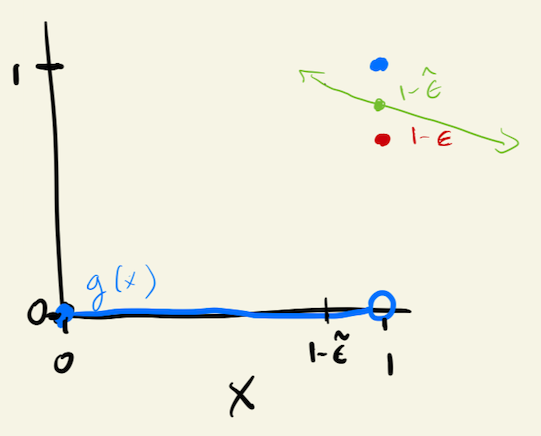 1
1-ε̂
1-ε
g(x)
0
1-ε̃
0
1
X